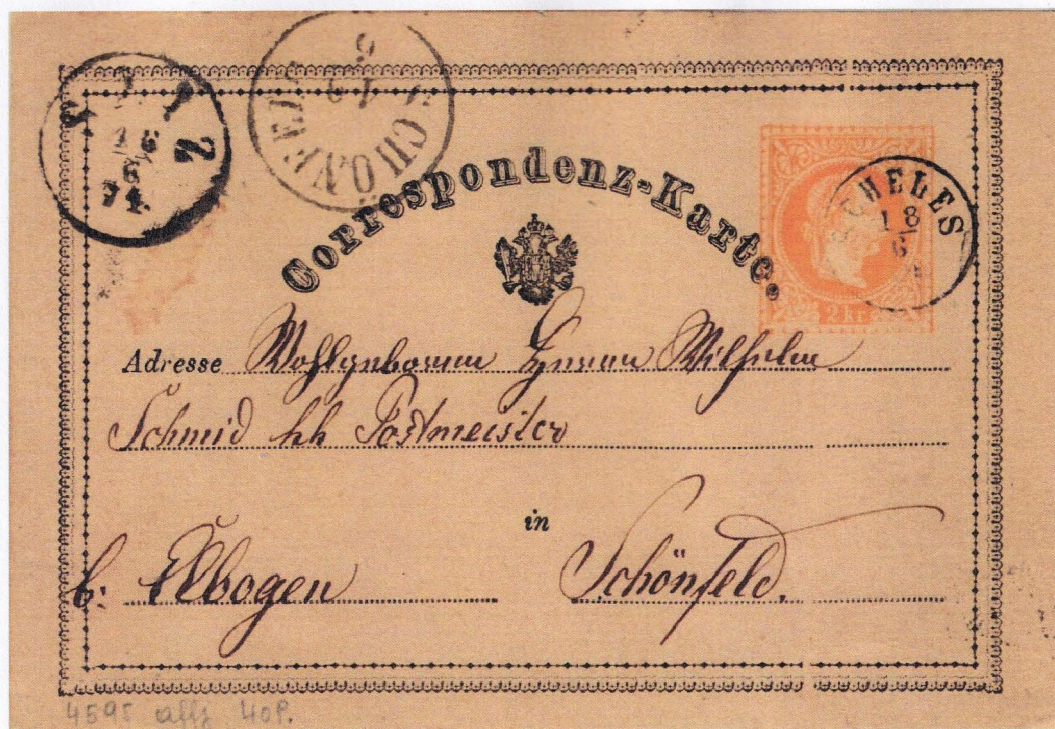 SCHÖNFELD
Correspondenz-Karte.
CHELES
18
6
2 kr
Adresse Wohlgeborenen Herrn Wilhelm
Schmid kk Postmeister
in
b: Elbogen Schönfeld.
4595
40P.